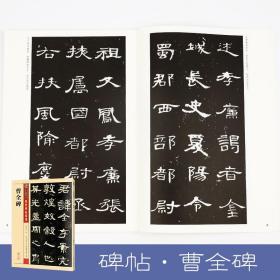 述孝廉謁者金
城長史夏陽令
蜀郡西部都尉
祖父鳳孝廉張
掖屬國都尉丞
右扶風隃麋侯
曹全碑
君諱全字景完
敦煌效穀人也
其先蓋周之胄
碑帖·曹全碑